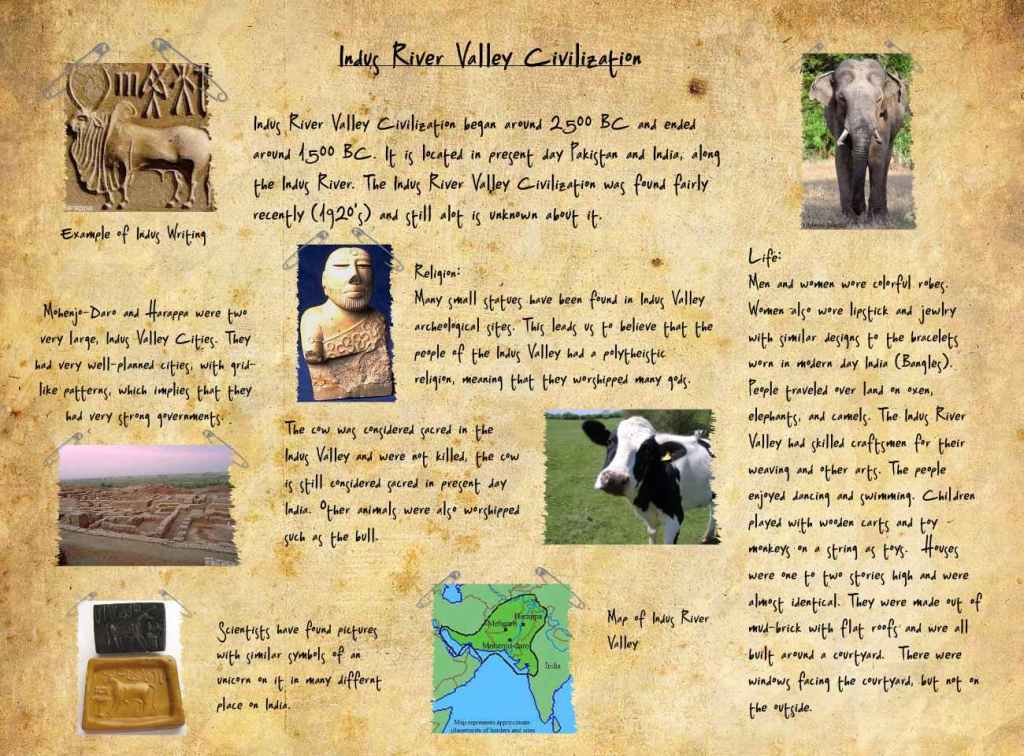 Indus River Valley Civilization
Indus River Valley Civilization began around 2500 BC and ended
around 1500 BC. It is located in present day Pakistan and India, along
the Indus River. The Indus River Valley Civilization was found fairly
recently (1920's) and still alot is unknown about it.
Example of Indus Writing
Mohenjo-Daro and Harappa were two
very large, Indus Valley Cities. They
had very well-planned cities, with grid-
like patterns, which implies that they
had very strong governments.
Religion:
Many small statues have been found in Indus Valley
archeological sites. This leads us to believe that the
people of the Indus Valley had a polytheistic
religion, meaning that they worshipped many gods.
The cow was considered sacred in the
Indus Valley and were not killed, the cow
is still considered sacred in present day
India. Other animals were also worshipped
such as the bull.
Life:
Men and women wore colorful robes.
Women also wore lipstick and jewlry
with similar designs to the bracelets
worn in modern day India (Bangles).
People traveled over land on oxen,
elephants, and camels. The Indus River
Valley had skilled craftsmen for their
weaving and other arts. The people
enjoyed dancing and swimming. Children
played with wooden carts and toy
monkeys on a string as toys. Houses
were one to two stories high and were
almost identical. They were made out of
mud-brick with flat roofs and wre all
built around a courtyard. There were
windows facing the courtyard, but not on
the outside.
Scientists have found pictures
with similar symbols of an
unicorn on it in many differnt
place on India.
Harappa
Mehrgarh
Mohenjo-daro
India
Map represents approximate
placements of borders and sites
Map of Indus River
Valley